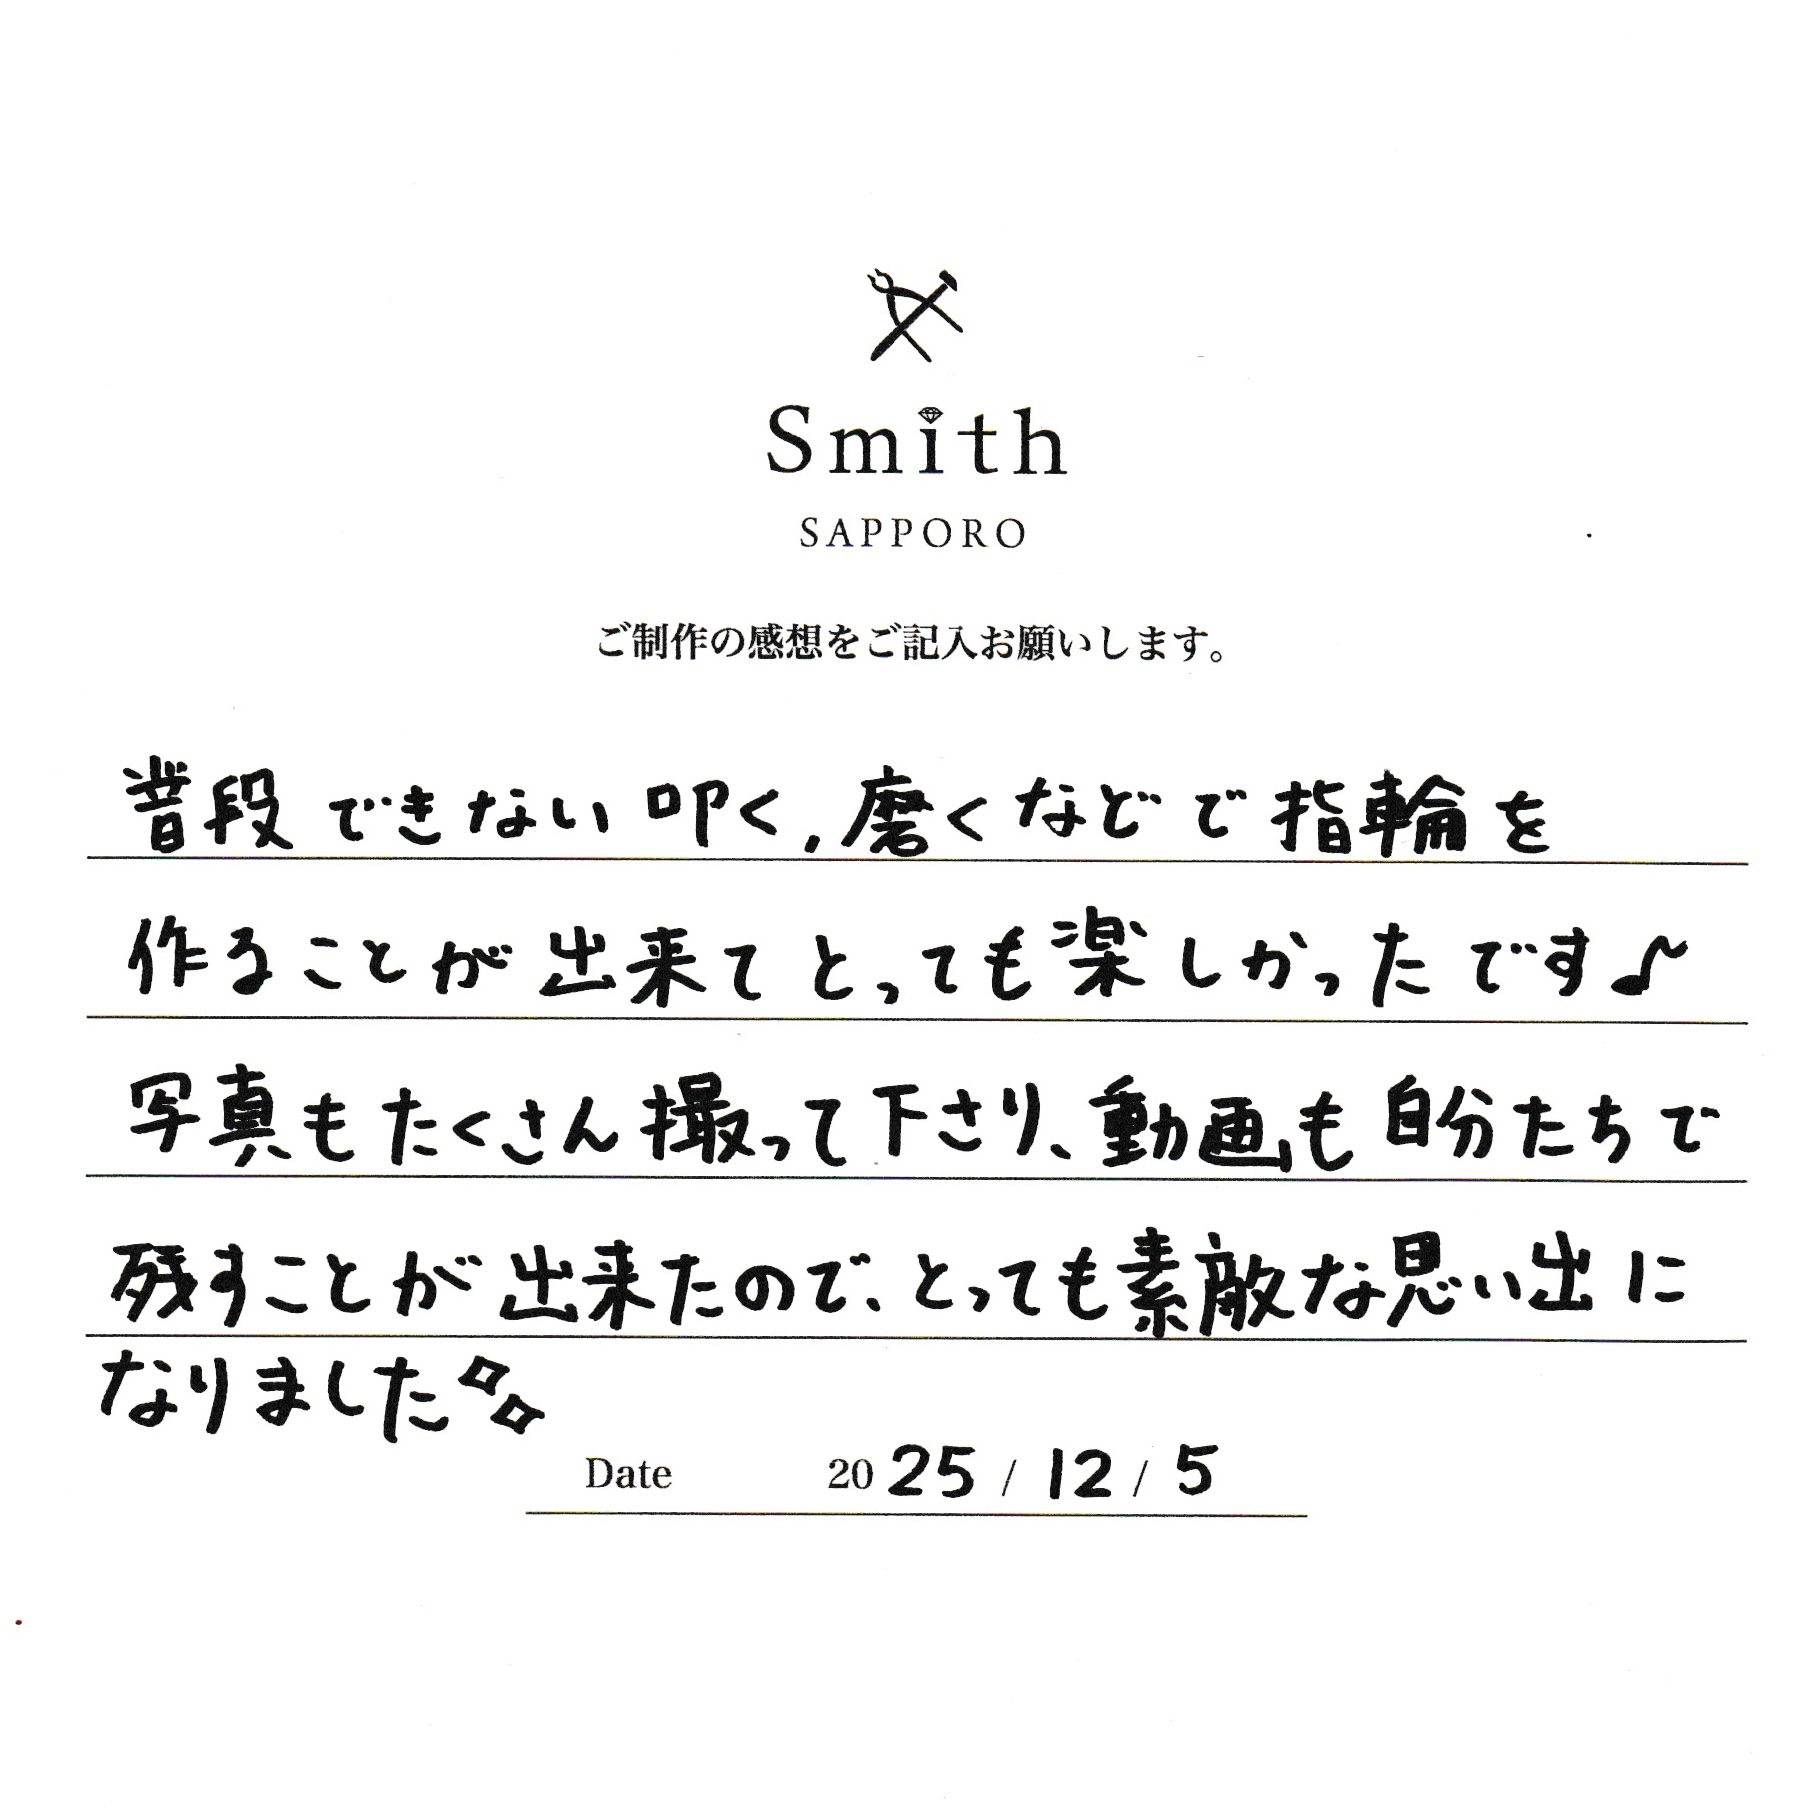 Smith
SAPPORO
ご制作の感想をご記入お願いします。
普段できない叩く,磨くなどで指輪を
作ることが出来てとっても楽しかったです♪
写真もたくさん撮って下さり、動画も自分たちで
残すことが出来たので、とっても素敵な思い出に
なりました
Date 2025/12/5